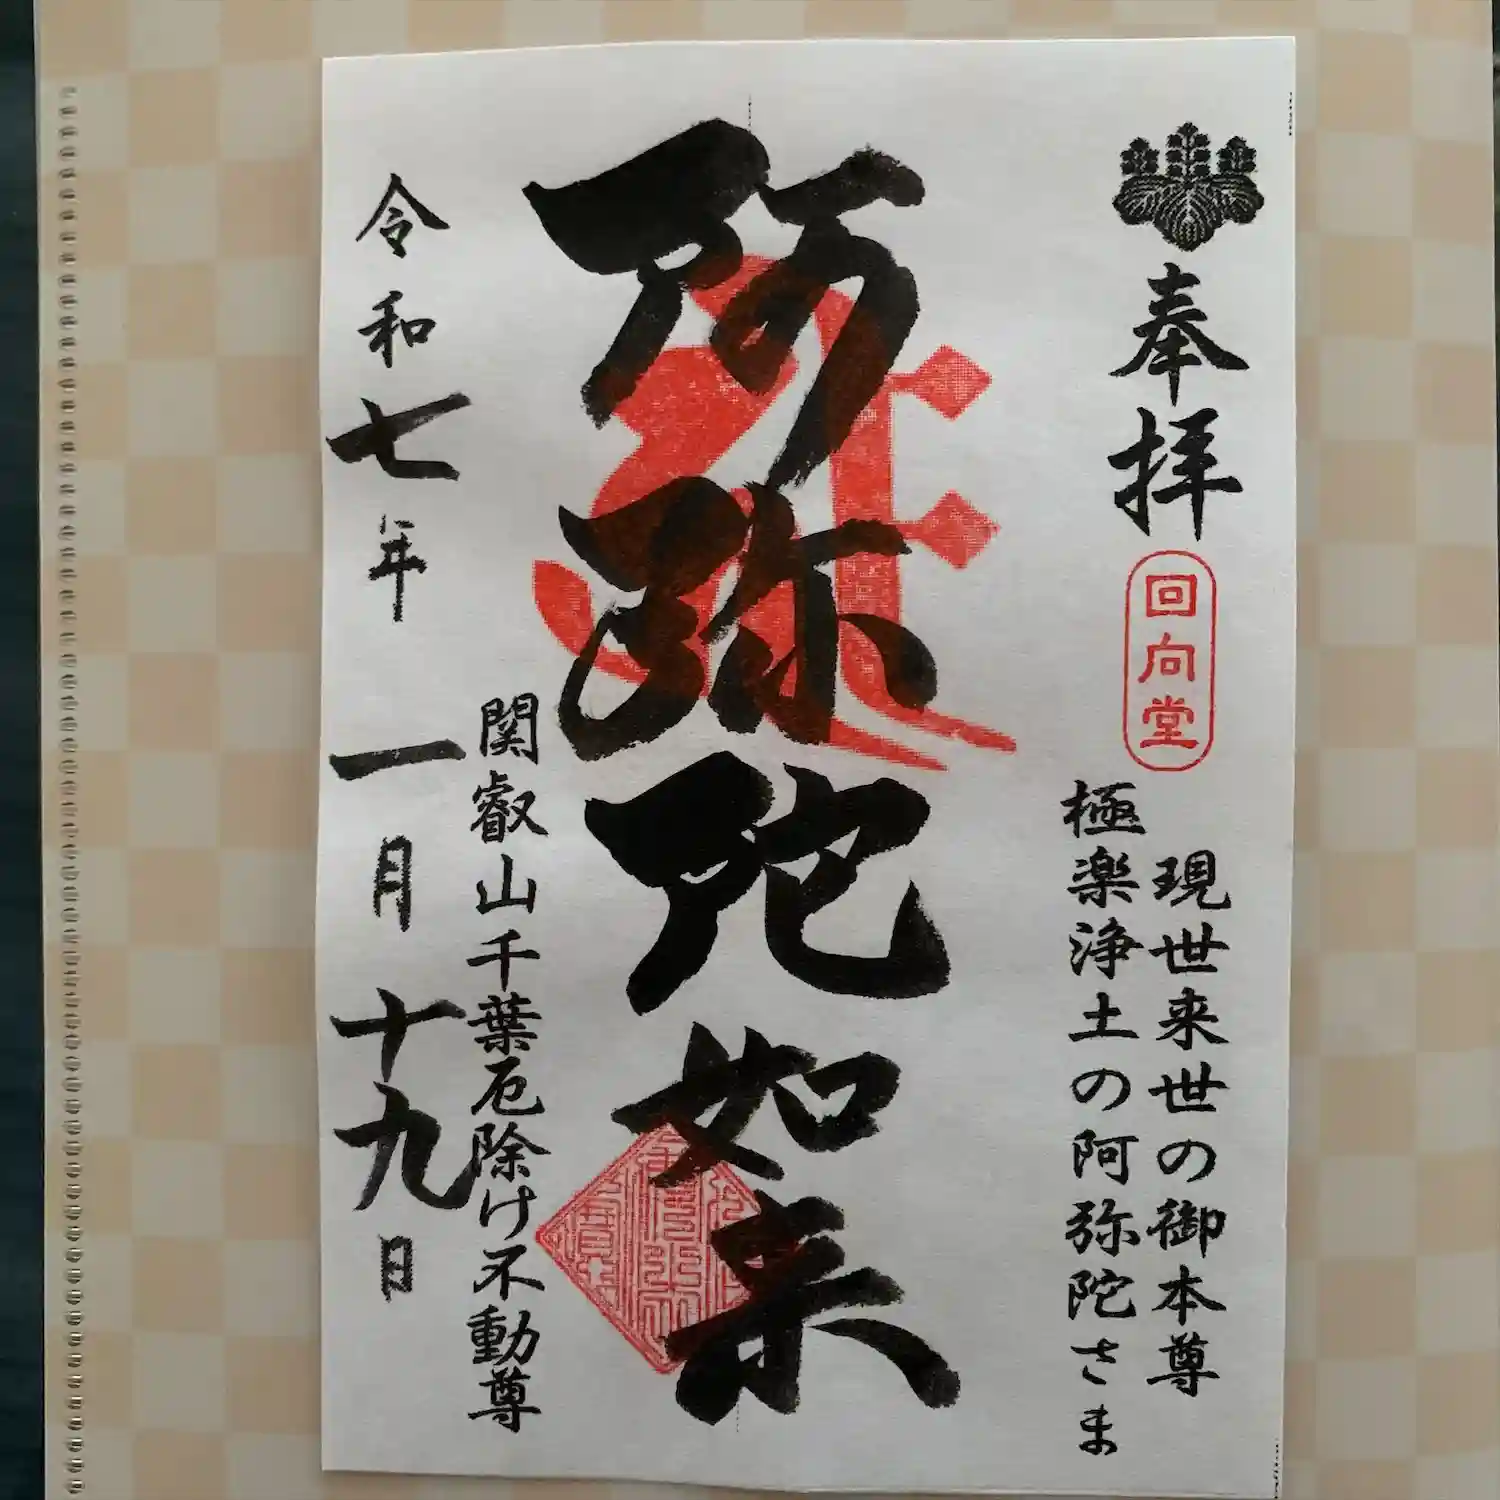 奉拝
回向堂
現世来世の御本尊
極楽浄土の阿弥陀さま
阿弥陀如来
関叡山千葉厄除け不動尊
令和七年一月十九日